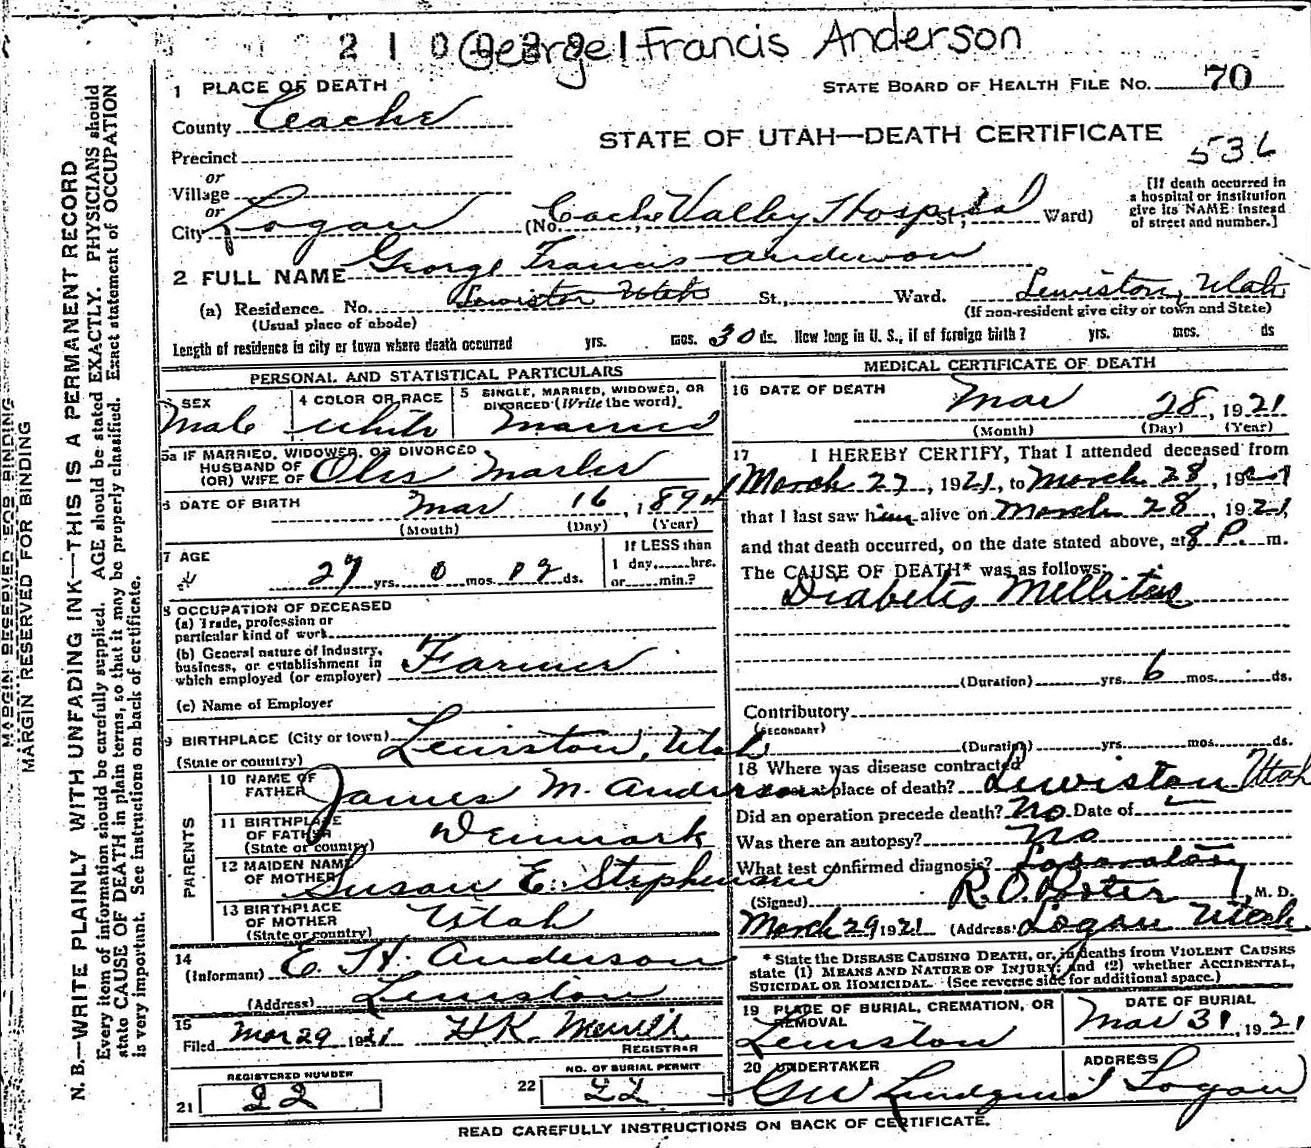 2 1 0 George Francis Anderson
1 PLACE OF DEATH
STATE BOARD OF HEALTH FILE NO. 70
County Ceache
STATE OF UTAH—DEATH CERTIFICATE
536
Precinct
or
Village
or
City Logan (No. Cache Valley Hospital St.; Ward)
[If death occurred in
a hospital or institution
give its NAME instead
of street and number.]
2 FULL NAME George Francis Anderson
(a) Residence. No. Lewiston Utah St., Ward. Lewiston, Utah
(Usual place of abode) (If non-resident give city or town and State)
Length of residence is city or town where death occurred yrs. mos. 30 ds. How long in U. S., if of foreign birth? yrs. mos. ds
PERSONAL AND STATISTICAL PARTICULARS
3 SEX Male
4 COLOR OR RACE White
5 SINGLE, MARRIED, WIDOWED, OR
DIVORCED (Write the word). Married
5a IF MARRIED, WIDOWED, OR DIVORCED
HUSBAND OF
(OR) WIFE OF Marler
6 DATE OF BIRTH Mar 16, 1894
(Month) (Day) (Year)
7 AGE 27 yrs. 0 mos. 12 ds.
If LESS than
1 day, hrs.
or min.?
8 OCCUPATION OF DECEASED
(a) Trade, profession or
particular kind of work
(b) General nature of Industry,
business, or establishment in
which employed (or employer) Farmer
(c) Name of Employer
9 BIRTHPLACE (City or town) Lewiston, Utah
(State or country)
PARENTS
10 NAME OF
FATHER James M. Anderson
11 BIRTHPLACE
OF FATHER
(State or country) Denmark
12 MAIDEN NAME
OF MOTHER Susan E. Stephenson
13 BIRTHPLACE
OF MOTHER
(State or country) Utah
14
(Informant) E. H. Anderson
(Address) Lewiston
15
Filed Mar 29 1921 H K. Merrill
REGISTRAR
REGISTERED NUMBER
21 22
NO. OF BURIAL PERMIT
22 22
MEDICAL CERTIFICATE OF DEATH
16 DATE OF DEATH
Mar 28, 1921
(Month) (Day) (Year)
17 I HEREBY CERTIFY, That I attended deceased from
March 27, 1921, to March 28, 1921
that I last saw him alive on March 28, 1921,
and that death occurred, on the date stated above, at 8 P. m.
The CAUSE OF DEATH* was as follows:
Diabetis Mellitus
(Duration) yrs. 6 mos. ds.
Contributory
(SECONDARY)
(Duration) yrs. mos. ds.
18 Where was disease contracted
if not at place of death? Lewiston Utah
Did an operation precede death? No Date of
Was there an autopsy? No
What test confirmed diagnosis? Laboratory
(Signed) R.O. Porter, M. D.
March 29 1921 (Address) Logan Utah
* State the DISEASE CAUSING DEATH, or, in deaths from VIOLENT CAUSES
state (1) MEANS AND NATURE OF INJURY; and (2) whether ACCIDENTAL,
SUICIDAL OR HOMICIDAL. (See reverse side for additional space.)
19 PLACE OF BURIAL, CREMATION, OR
REMOVAL
Lewiston
DATE OF BURIAL
Mar 31, 1921
20 UNDERTAKER
G W Lindquist
ADDRESS
Logan
READ CAREFULLY INSTRUCTIONS ON BACK OF CERTIFICATE.
MARGIN RESERVED FOR BINDING
MARGIN RESERVED FOR BINDING
N. B.—WRITE PLAINLY WITH UNFADING INK—THIS IS A PERMANENT RECORD
Every item of information should be carefully supplied. AGE should be stated EXACTLY. PHYSICIANS should
state CAUSE OF DEATH in plain terms, so that it may be properly classified. Exact statement of OCCUPATION
is very important. See instructions on back of certificate.